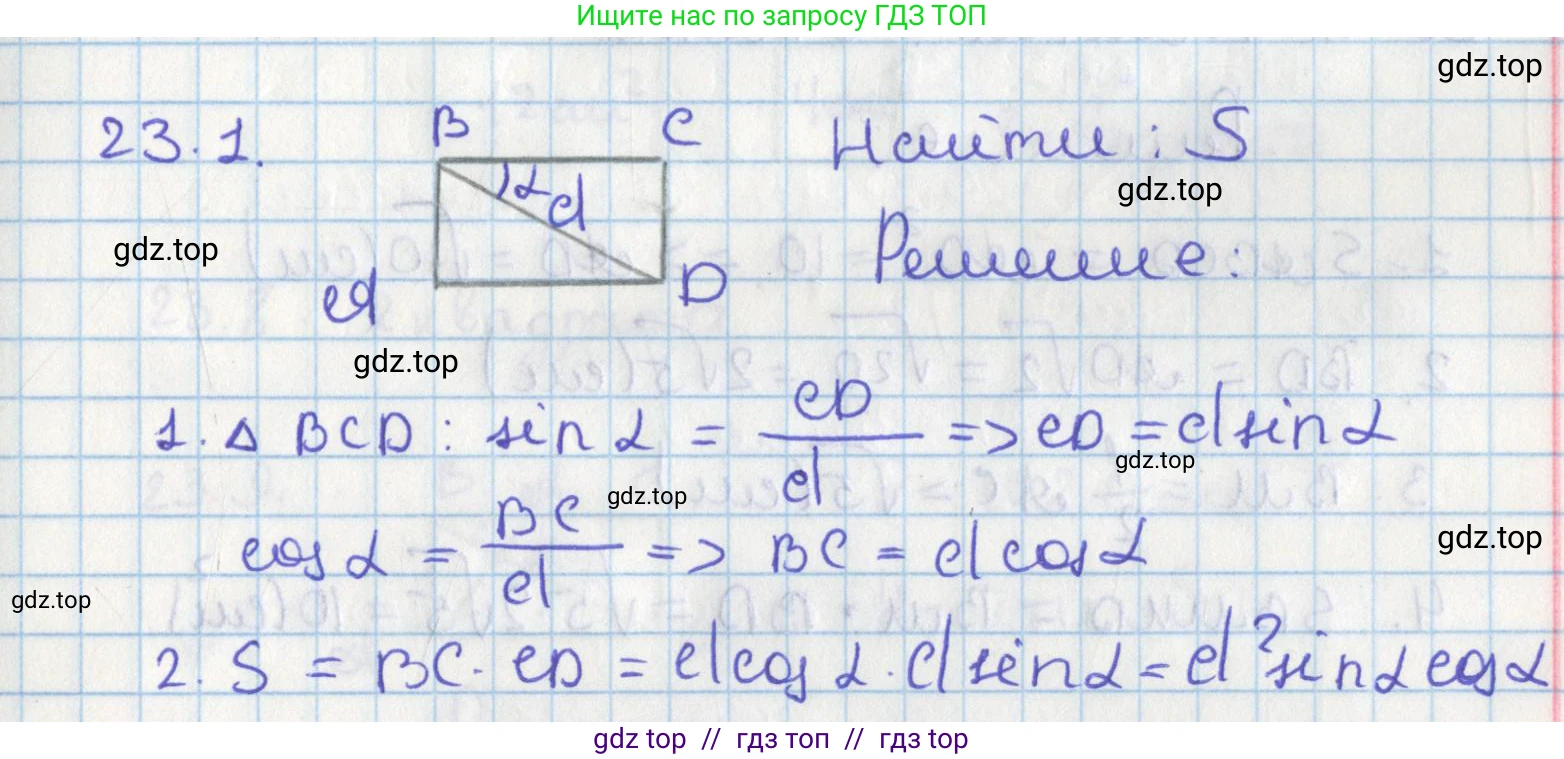 Ищите нас по запросу ГДЗ ТОП
gdz.top
23.1.
B C
Найти: S
α d
gdz.top
gdz.top
Решение:
A D
gdz.top
1. Δ BCD: sin α = CD/d => CD = d sin α
gdz.top
gdz.top
cos α = BC/d => BC = d cos α
gdz.top
gdz.top
2. S = BC · CD = d cos α · d sin α = d² sin α cos α
gdz top // гдз топ // гдз top